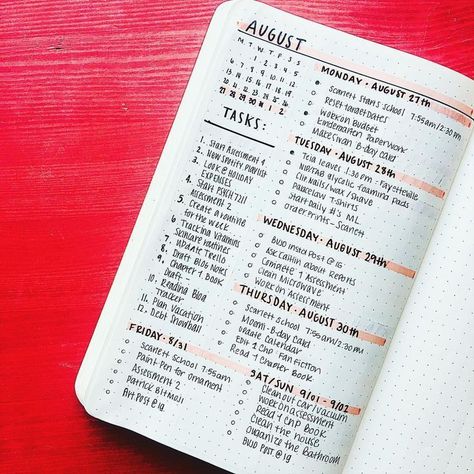 AUGUST
M T W T F S S
1 2 3 4 5
6 7 8 9 10 11 12
13 14 15 16 17 18 19
20 21 22 23 24 25 26
27 28 29 30 31 1 2
TASKS:
1. Start Assessment 4
2. New Spotify Playlist
3. Look @ Holiday
Expenses
4. Start PSYCH
Assessment 2
5. Create a routine
for the week
6. Tracking Vitamins
7. Skincare
8. Update Trello
9. Draft Blog Notes
Chapter 4 Book
Draft
10. Reading Blog
11. Tracker
12. Plan Vacation
Debt Snowball
MONDAY · AUGUST 27TH
Scarlett Starts School 7:55am/2:30pm
Reset Target Dates
Work on Budget
Kindergarten Paperwork
Make Swan B-day Card
TUESDAY · AUGUST 28TH
Teia leaves 1:30pm - Fayetteville
Glycolic Foaming Pads
Clip Nails/Wax/Shave
T-Shirts
Start Daily #'s ML
Order Prints - Scarlett
WEDNESDAY · AUGUST 29TH
BUJO Post @ IG
Ask Caitlin About Reports
Complete Assessment
Clean Microwave
Work on Assessment
THURSDAY · AUGUST 30TH
Scarlett School 7:55am/2:30pm
B-day Card
Update Calendar
Edit Fan Fiction
Read 1 Chapter Book
FRIDAY · 8/31
Scarlett School 7:55am
Paint Pen for Ornament
Assessment 2
Patrick Bitmoji
Art Post @ IG
SAT/SUN · 9/01 - 9/02
Clean out Car/Vacuum
Work on Assessment
Read 1 Chp Book
Clean the House
Organize the Bathroom
BUJO Post @ IG